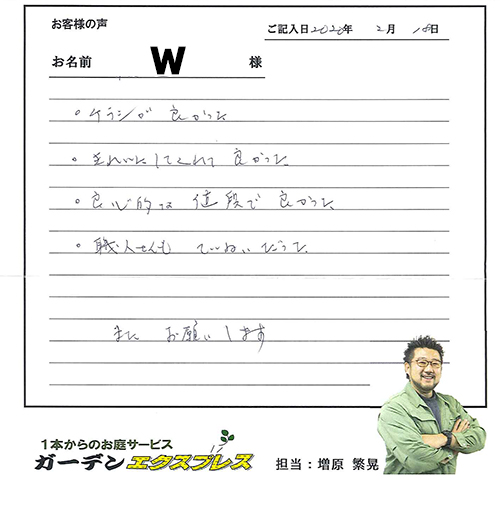 お客様の声
ご記入日2020年 2月 18日
お名前 W 様
。チラシが 良かった
。きれいにしてくれて 良かった
。良心的な 値段で 良かった
。職人さんも ていねいだった
また お願いします
1本からのお庭サービス
ガーデンエクスプレス
担当：増原 繁晃